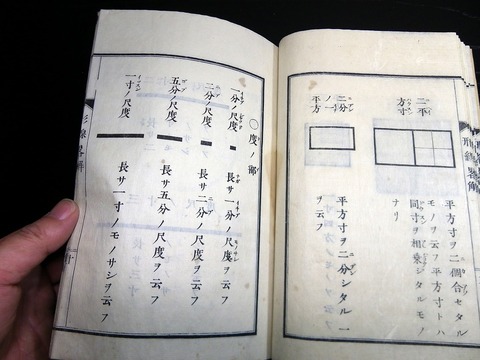 二平
方寸
平方寸ヲ二個合セタル
モノヲ云フ平方寸トハ
同寸ヲ相乗シタルモノ
ナリ
二分
ノ一
平方
平方寸ヲ二分シタル一
ヲ云フ
〇度ノ部
一分ノ尺度
長サ一分ノ尺度ヲ云フ
二分ノ尺度
長サ二分ノ尺度ヲ云フ
五分ノ尺度
長サ五分ノ尺度ヲ云フ
一寸ノ尺度
長サ一寸ノモノサシヲ云フ